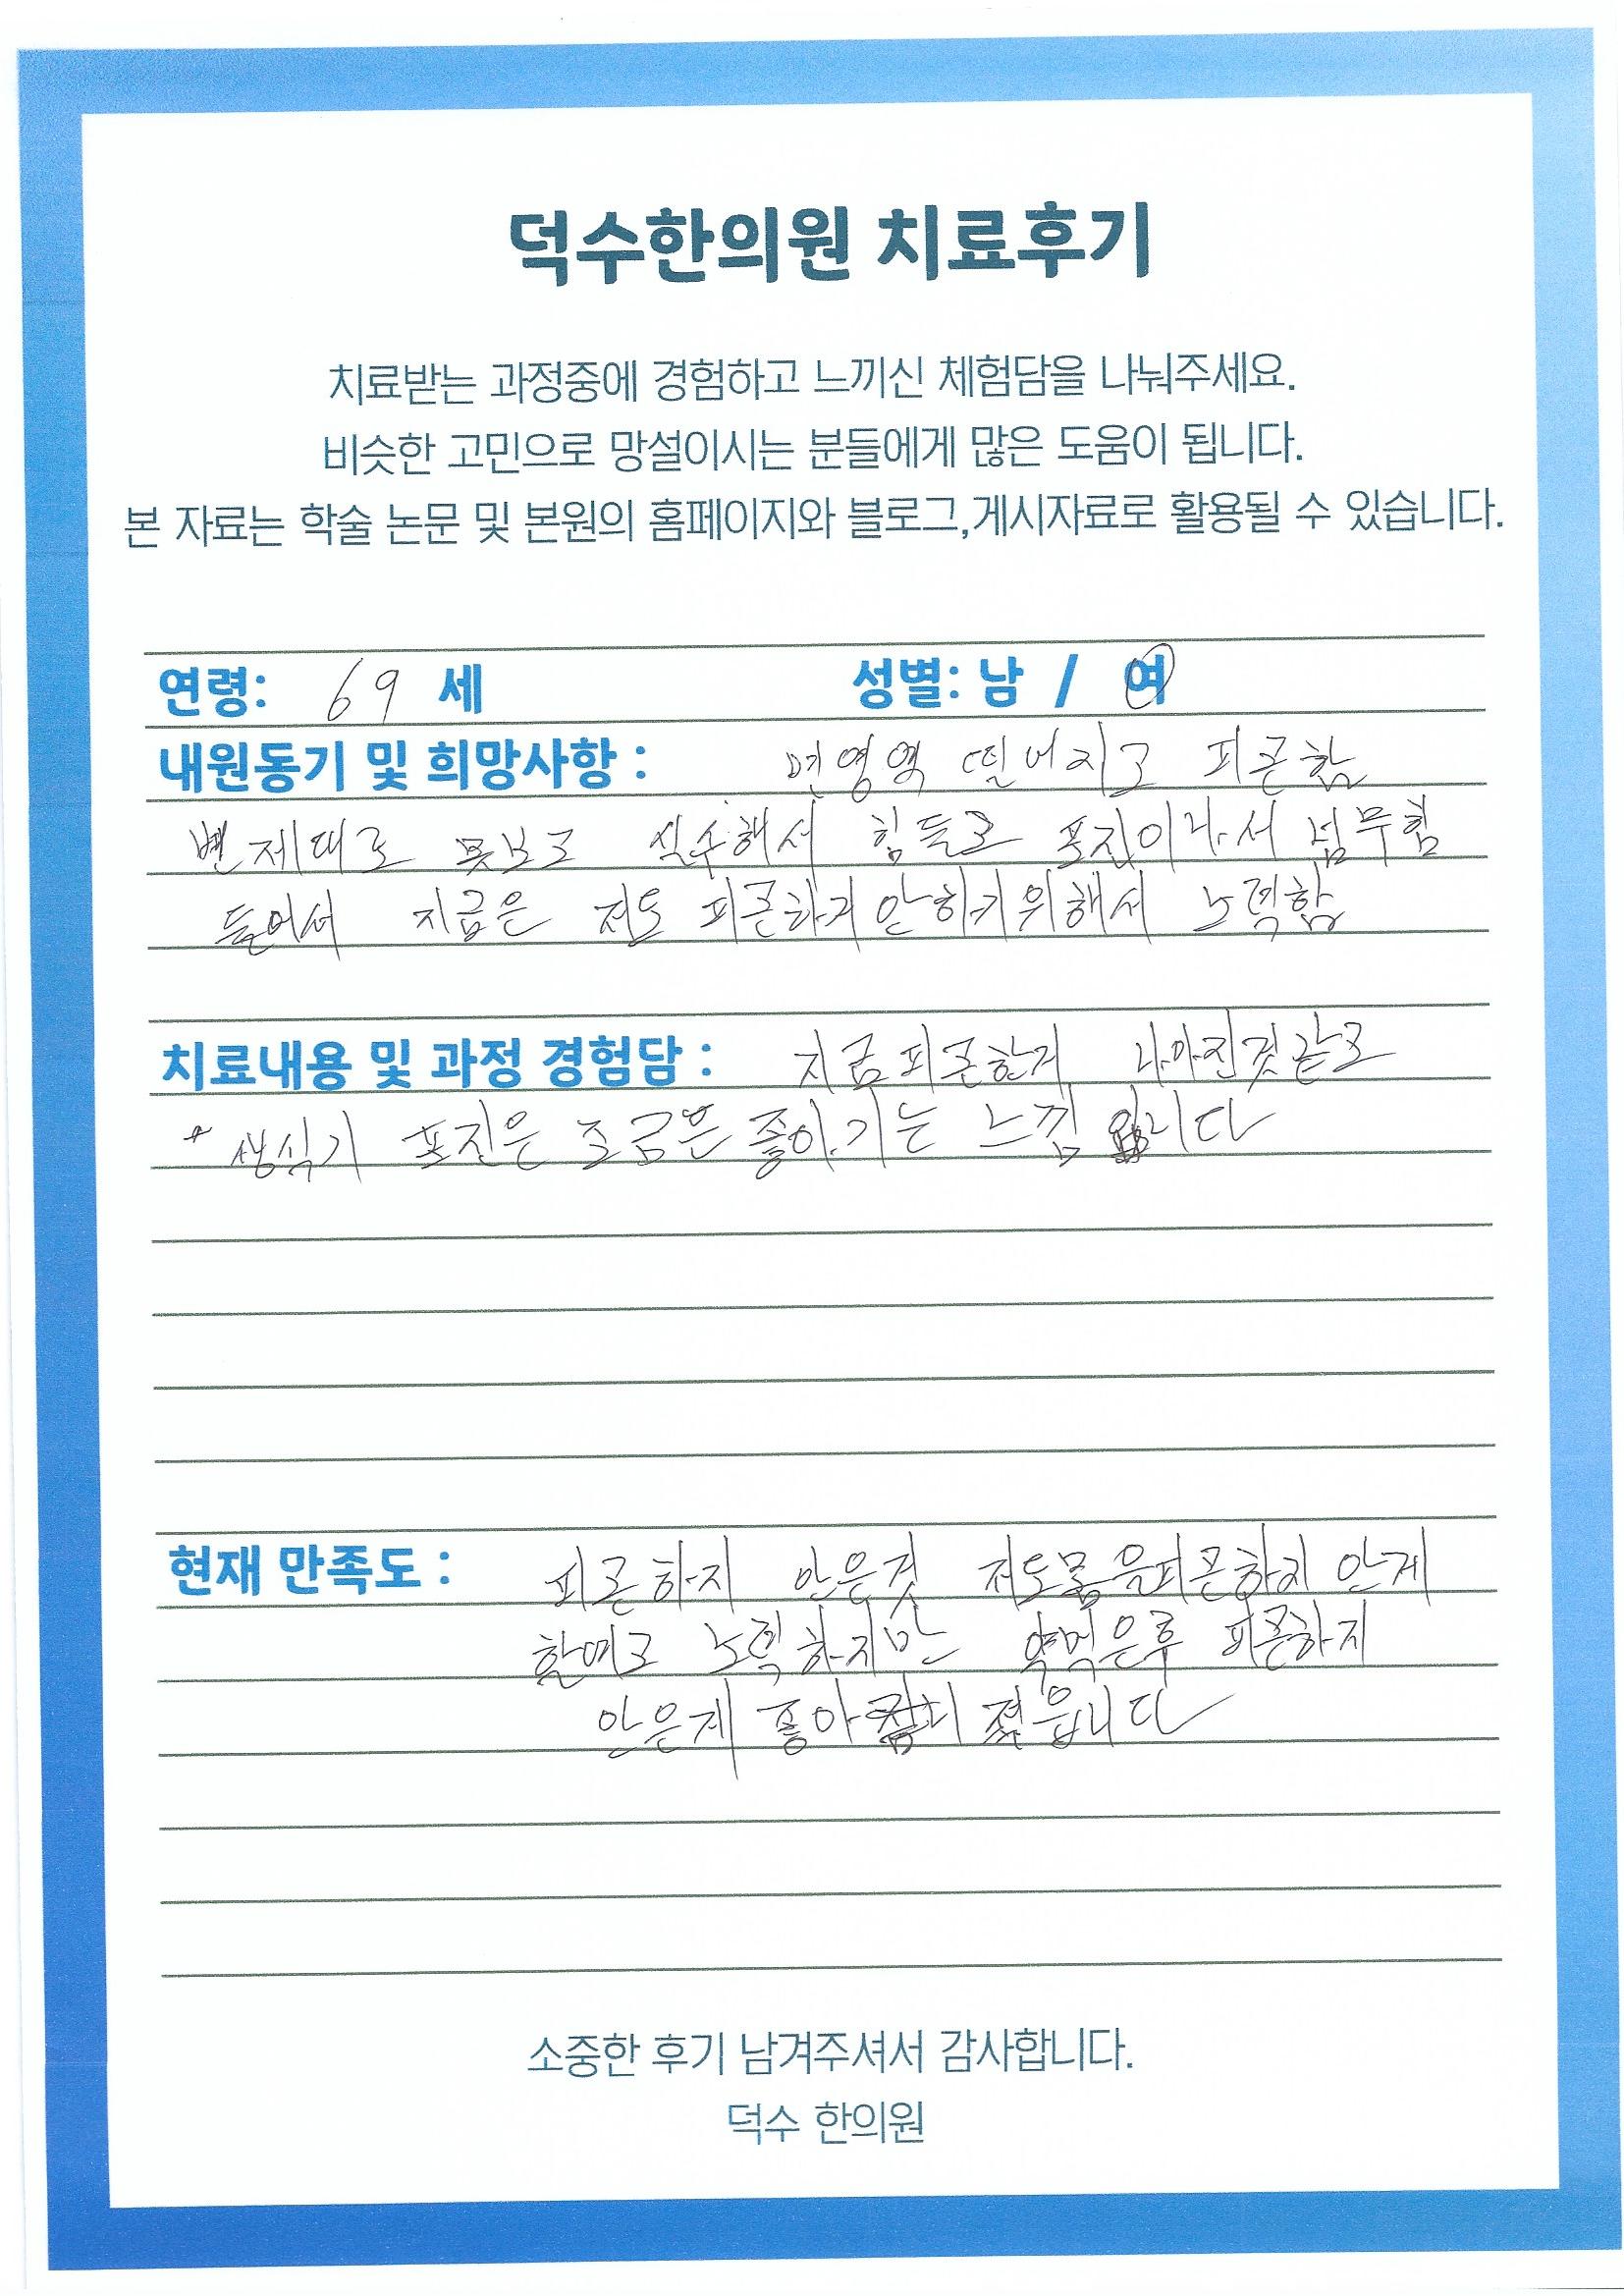 덕수한의원 치료후기
치료받는 과정중에 경험하고 느끼신 체험담을 나눠주세요.
비슷한 고민으로 망설이시는 분들에게 많은 도움이 됩니다.
본 자료는 학술 논문 및 본원의 홈페이지와 블로그,게시자료로 활용될 수 있습니다.
연령: 69 세 성별: 남 / 여
내원동기 및 희망사항 : 면영역 떨어지고 피곤함
변 제대로 못보고 실수해서 힘들고 포진이나서 넘무힘
들어서 지금은 저도 피곤하지안하기위해서 노력함
치료내용 및 과정 경험담 : 지금피곤한게 나아진것같고
* 생식기 포진은 조금은 좋아.기는 느낌 입니다
현재 만족도 : 피곤하지 안은것 저도몸음피곤하지 안게
할여고 노력하지만 약먹은후 피곤하지
안은게 좋아
소중한 후기 남겨주셔서 감사합니다.
덕수 한의원